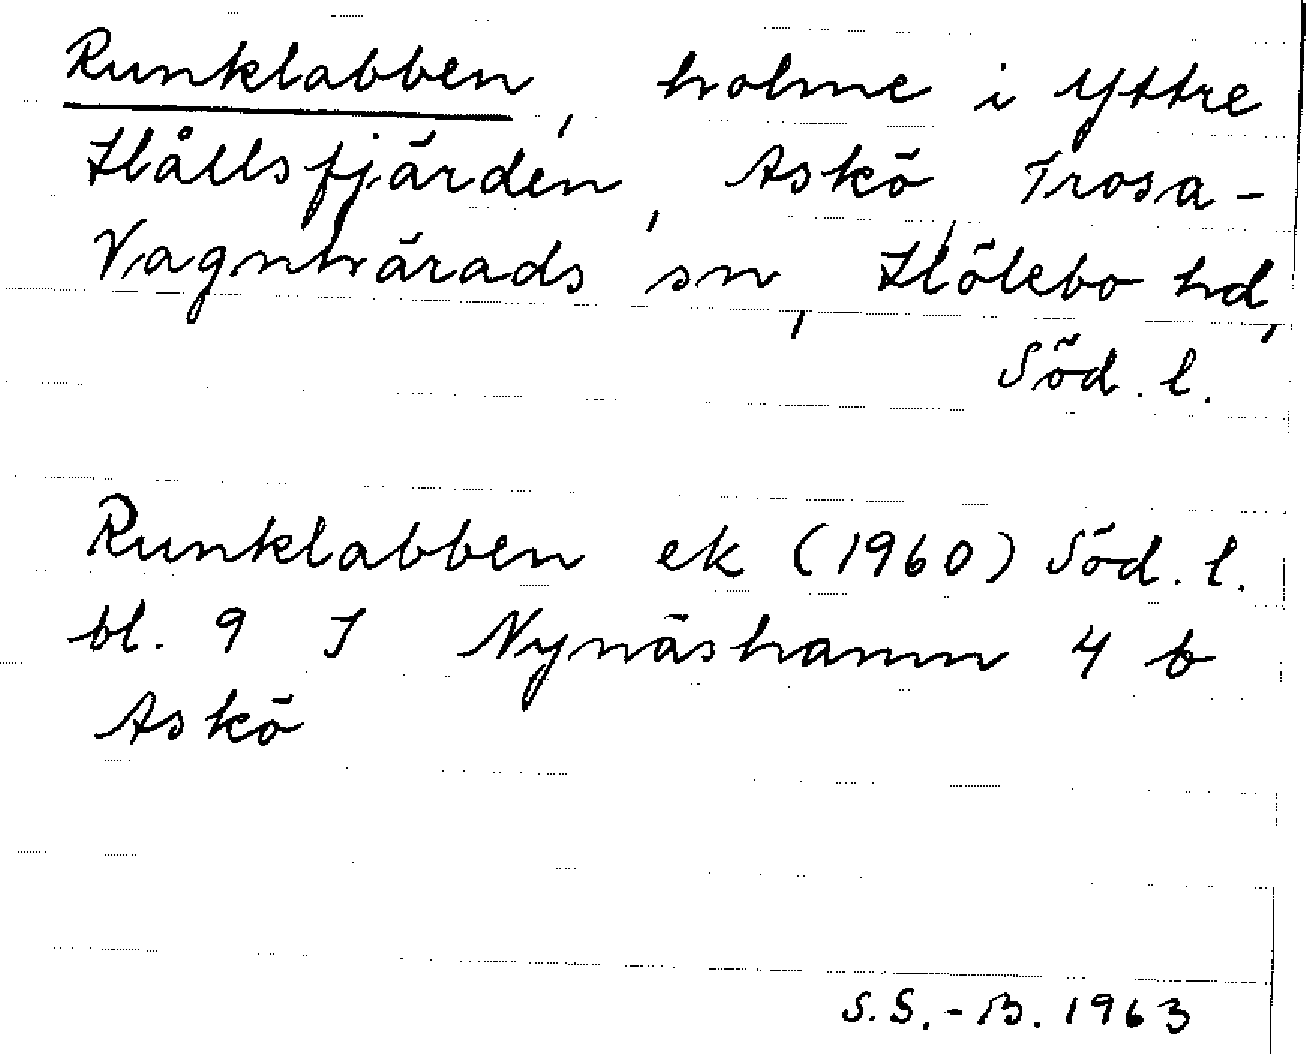 Runklabben, holme i Yttre
Hållsfjärden, Askö, Trosa-
Vagnhärads sn, Hölebo hd,
Söd. l.
Runklabben ek (1960) Söd. l.
bl. 9 J Nynäshamn 4 b
Askö
S.S.-B. 1963